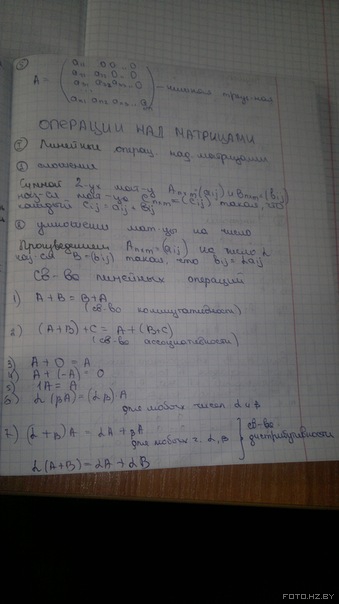 ⑤
A = (a₁₁ 0 0 .. 0
a₂₁ a₂₂ 0 .. 0
a₃₁ a₃₂ a₃₃ .. 0
...
aₙ₁ aₙ₂ aₙ₃ ... aₙₙ) - нижняя треуг-ная
ОПЕРАЦИИ НАД МАТРИЦАМИ
Линейные операц. над матрицами
① сложения
Суммой 2-ух мат-ц Aₙₓₘ(aᵢⱼ) и Bₙₓₘ=(bᵢⱼ)
наз-ся мат-ца Cₙₓₘ=(cᵢⱼ) такая, что
каждый cᵢⱼ = aᵢⱼ + bᵢⱼ
② умножения мат-цы на число
Произведением Aₙₓₘ=(aᵢⱼ) на число α
наз-ся B=(bᵢⱼ) такая, что bᵢⱼ = αaᵢⱼ
св-во линейных операций
1) A + B = B + A
(св-во коммутативности)
2) (A+B)+C = A+(B+C)
(св-во ассоциативности)
3) A + 0 = A
4) A + (-A) = 0
5) 1A = A
6) α(βA) = (αβ)A
для любых чисел α и β
7) (α+β)A = αA + βA
для любых ч. α, β
св-во
дистрибутивности
α(A+B) = αA + αB
FOTO.HZ.BY